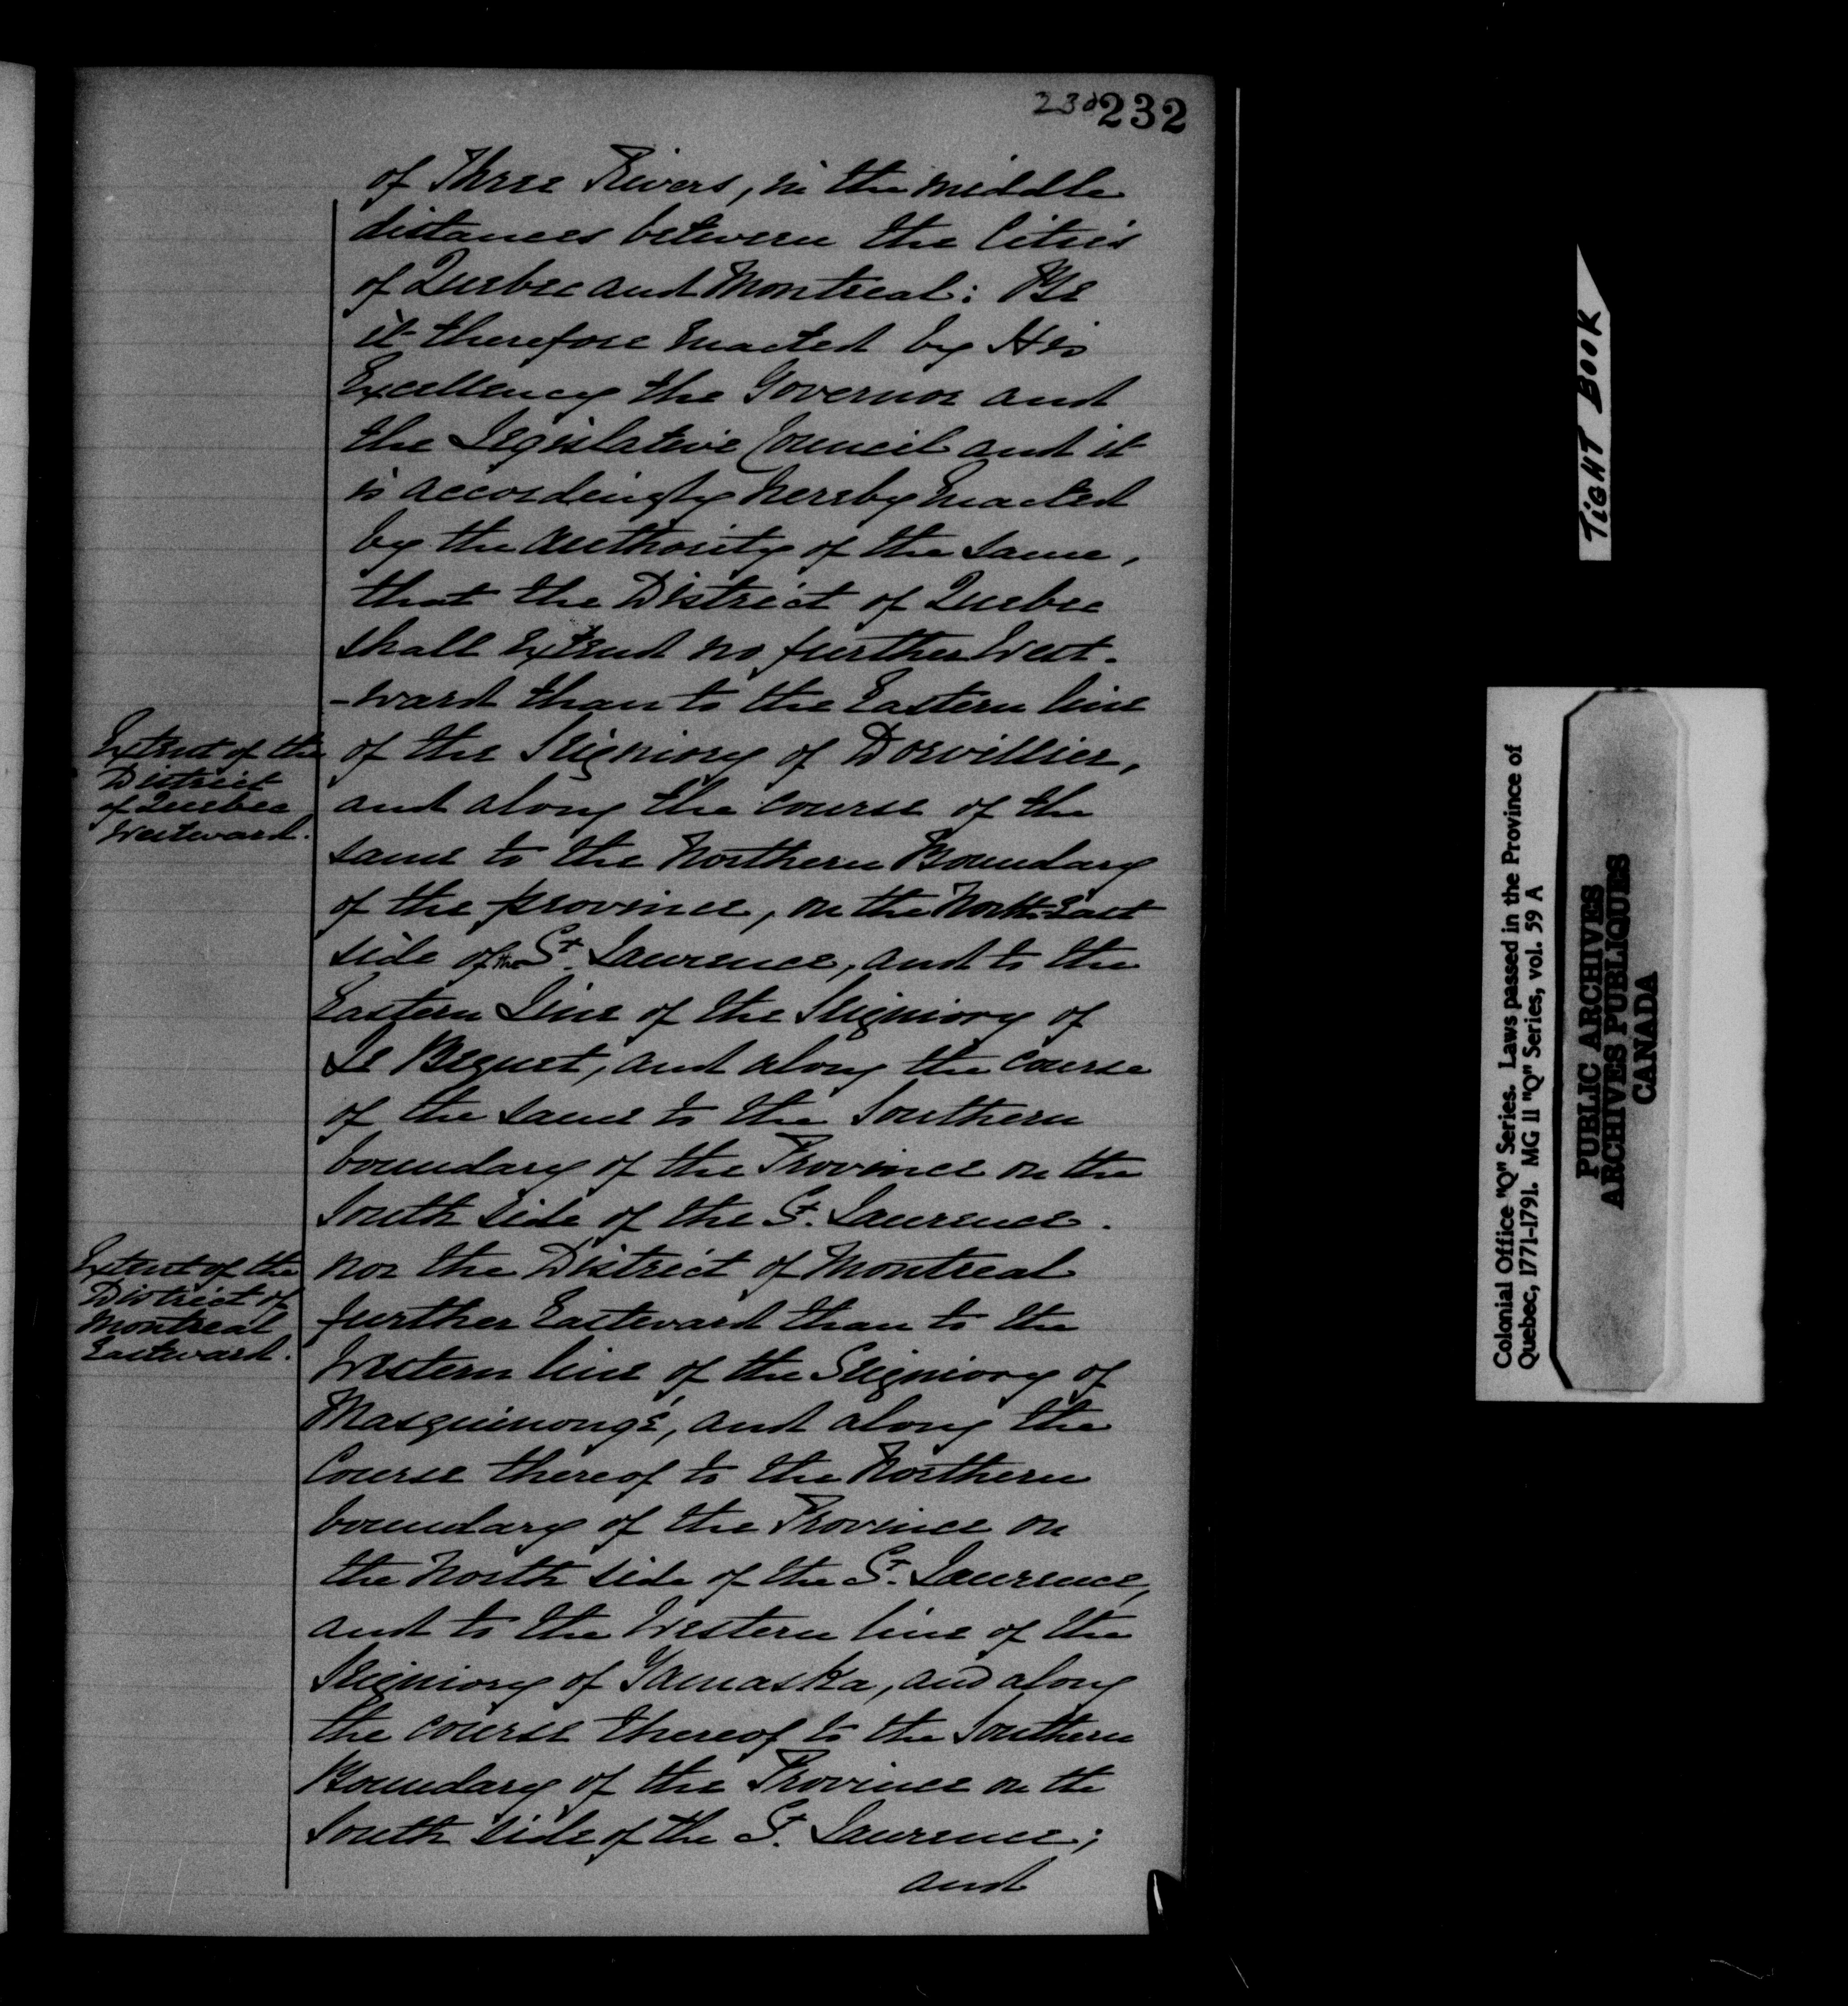 232
of Three Rivers, in the middle
distances between the Cities
of Quebec and Montreal: Be
it therefore enacted by His
Excellency the Governor and
the Legislative Council and it
is accordingly hereby enacted
by the authority of the same,
that the District of Quebec
shall extend no further West-
-ward than to the Eastern line
of the Seigniory of Dorvillier,
and along the course of the
same to the Northern Boundary
of the province, on the North East
side of the St. Lawrence, and to the
Eastern Line of the Seigniory of
Le Bequet, and along the course
of the same to the Southern
boundary of the Province on the
South side of the St. Lawrence.
nor the District of Montreal
further Eastward than to the
Western line of the Seigniory of
Masquinongé, and along the
Course thereof to the Northern
boundary of the Province on
the North side of the St. Lawrence,
and to the Western line of the
Seigniory of Yamaska, and along
the course thereof to the Southern
Boundary of the Province on the
South side of the St. Lawrence;
and
Extent of the
District
of Quebec
Westward.
Extent of the
District of
Montreal
Eastward.
TIGHT BOOK
Colonial Office "Q" Series. Laws passed in the Province of
Quebec, 1771-1791. MG 11 "Q" Series, vol. 59 A
PUBLIC ARCHIVES
ARCHIVES PUBLIQUES
CANADA